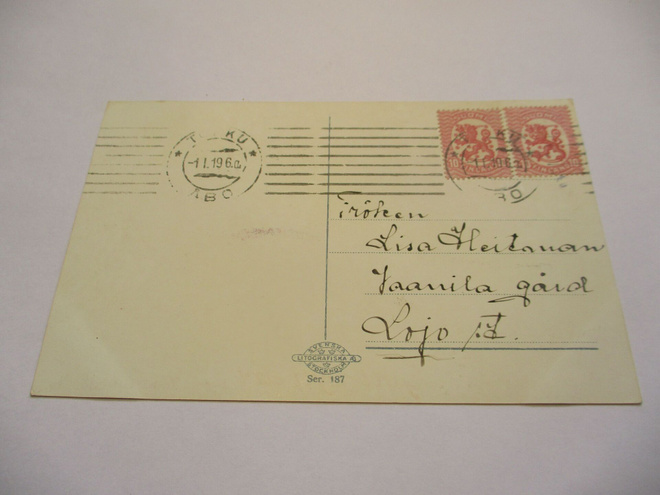 TURKU
-1.I.19 6.a.
ÅBO
-1.I.19 6.a
BO
Fröken
Lisa Heitaman
Vaanila gård
Lojo
SVENSKA
LITOGRAFISKA AB
STOCKHOLM
Ser. 187